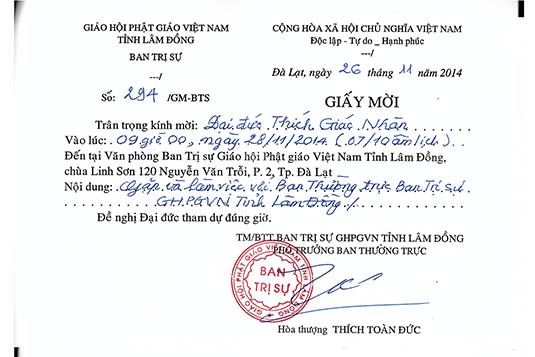 GIÁO HỘI PHẬT GIÁO VIỆT NAM
TỈNH LÂM ĐỒNG
BAN TRỊ SỰ
---/
Số: 294 /GM-BTS
CỘNG HÒA XÃ HỘI CHỦ NGHĨA VIỆT NAM
Độc lập - Tự do _ Hạnh phúc
---/
Đà Lạt, ngày 26 tháng 11 năm 2014
GIẤY MỜI
Trân trọng kính mời: Đại đức Thích Giác Nhàn
Vào lúc: 09 giờ 00, ngày 28/11/2014. (07/10 âm lịch).
Đến tại Văn phòng Ban Trị sự Giáo hội Phật giáo Việt Nam Tỉnh Lâm Đồng,
chùa Linh Sơn 120 Nguyễn Văn Trỗi, P. 2, Tp. Đà Lạt _
Nội dung: Gặp và làm việc với Ban Thường trực Ban Trị sự
GHPGVN Tỉnh Lâm Đồng /.
Đề nghị Đại đức tham dự đúng giờ.
TM/BTT.BAN TRỊ SỰ GHPGVN TỈNH LÂM ĐỒNG
PHÓ TRƯỞNG BAN THƯỜNG TRỰC
GIÁO HỘI PHẬT GIÁO VIỆT NAM TỈNH LÂM ĐỒNG
BAN
TRỊ SỰ
Hòa thượng THÍCH TOÀN ĐỨC